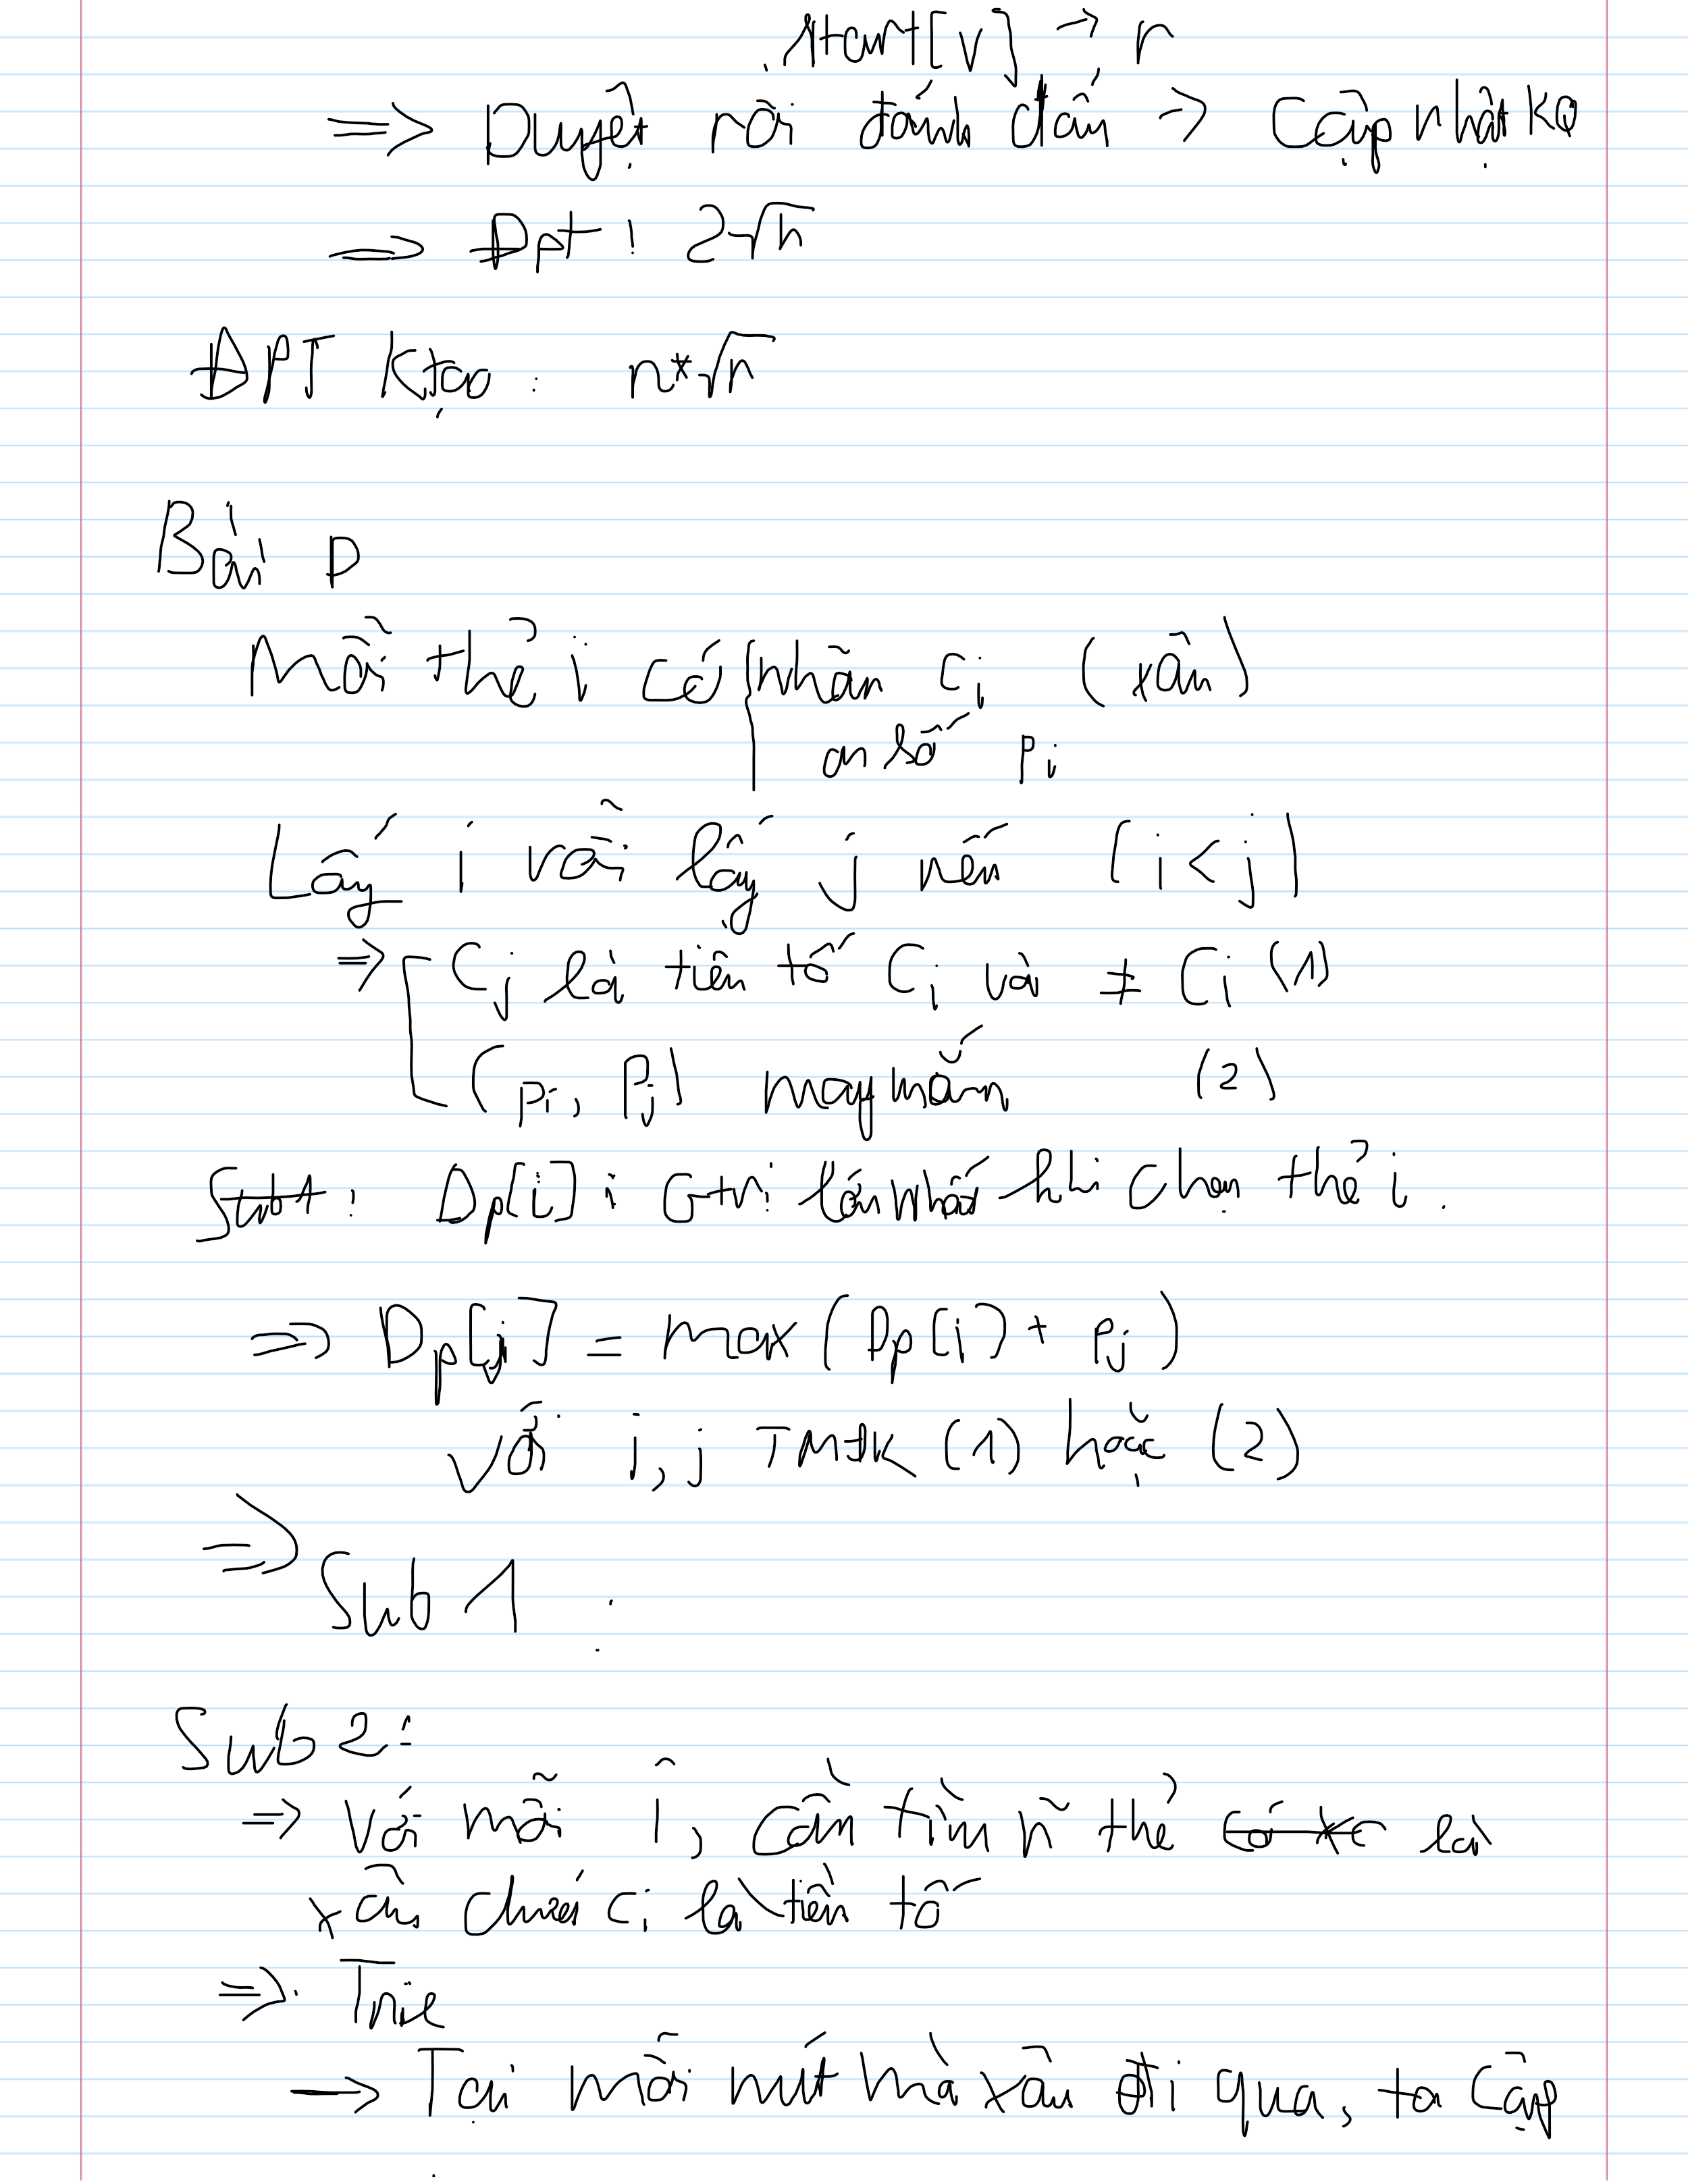 start[v] → r
⇒ Duyệt rồi đánh dấu → Cập nhật kq
⇒ Đpt : 2√n
ĐPT Ktạo : n*√n
Bài D
Mỗi thẻ i có nhãn Ci (xâu)
con số Pi
Lấy i rồi lấy j nếu (i < j)
⇒ Cj là tiền tố Ci và ≠ Ci (1)
(Pi, Pj) may mắn (2)
Sub1 : Dp[i] : Gtrị lớn nhất khi chọn thẻ i.
⇒ Dp[j] = max(Dp[i] + Pj)
Với i, j TMĐK (1) hoặc (2)
⇒ Sub 1 :
Sub 2:
⇒ Với mỗi i, cần tìm thẻ có là
xâu chứa Ci là tiền tố
⇒ Trie
→ Tại mỗi nút mà xâu đi qua, ta cập